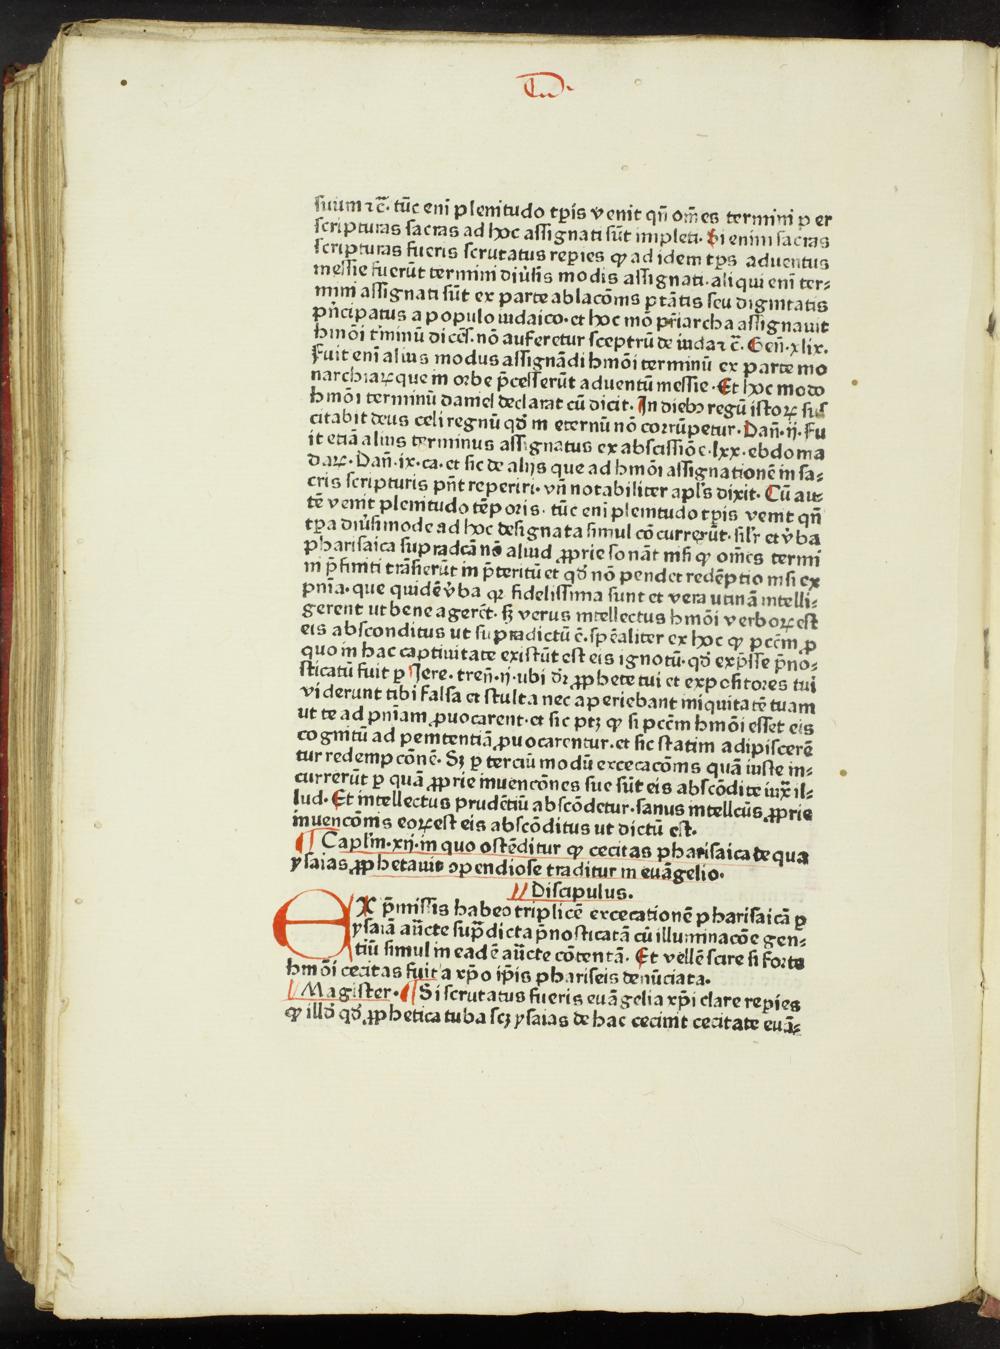 suum ⁊c̄. tūc eni plenitudo tp̄is venit qn̄ om̄es termini p er
scripturas sacras ad hoc assignati sūt impleti. Si enim sacras
scripturas fueris scrutatus rep̱ies ꝙ ad idem tp̄s aduentus
messie fuerūt termini diūsis modis assignati. aliqui eni ter⸗
mini assignati sūt ex parte ablacōnis p̱tātis seu dignitatis
pn̄cipatus a populo iudaico. et hoc mō pr̄iarcha assignauit
hmōi t̄minū dicēs. nō auferetur sceptrū de iuda ⁊c̄. Gen̄. xlix.
Fuit eni alius modus assignādi hmōi terminū ex parte mo
narchiaꝝ que in orbe p̄cesserūt aduentū messie. Et hoc modo
hmōi terminū daniel declarat cū dicit. In diebꝰ regū istoꝝ sus
citabit deus celi regnū qd̓ in eternū nō corrūpetur. Dan̄. ij. Fu
it etiā alius terminus assignatus ex abscissiōe. lxx. ebdoma
daꝝ. Dan̄. ix. ca. et sic de alijs que ad hmōi assignationē in sa⸗
cris scripturis pn̄t reperiri. vn̄ notabiliter apl̓s dixit. Cū au⸗
tē venit plenitudo tēporis. tūc eni plenitudo tp̱is venit qn̄
tp̱a diūsimode ad hoc designata simul cōcurrerūt. sil̓r et v̓ba
pharisaica supradcā nō aliud ꝓprie sonāt nisi ꝙ om̄es termi
ni p̄finiti trāsierūt in p̄teritū et qd̓ nō pendet redēptio nisi ex
pnīa. que quidē v̓ba qꝛ fidelissima sunt et vera utinā intelli⸗
gerent ut bene agerēt. sꝫ verus intellectus hmōi verboꝝ est
eis absconditus ut supradictū ē. sp̄ealiter ex hoc ꝙ pcēm p̱
quo in hac captiuitate existūt est eis ignotū. qd̓ exp̄sse p̄no⸗
sticatū fuit p̱ Jere. tren̄. ij. ubi dr̄ ꝓphete tui et expositores tui
viderunt tibi falsa et stulta nec aperiebant iniquitatē tuam
ut te ad pnīam ꝓuocarent. et sic ptꝫ ꝙ si pcēm hmōi esset eis
cognitū ad penitentiā ꝓuocarentur. et sic statim adipiscerē
tur redempcōnē. Sꝫ p̱ terciū modū excecacōnis quā iuste in⸗
currerūt p̱ quā ꝓprie inuencōnes sue sūt eis abscōdite iux̄ il⸗
lud. Et intellectus prudētiū abscōdetur. sanus intellcūs ꝓprie
inuencōnis eoꝝ est eis abscōditus ut dictū est.
¶ Capl̓m. xij. in quo ostēditur ꝙ cecitas pharisaica de qua
ysaias ꝓphetauit ↄpendiose traditur in euāgelio.
Discipulus.
EX p̄missis habeo triplicē excecationē pharisaicā p̱
ysaiā aūcte sup̄dicta p̄nosticatā cū illuminacōe gen⸗
tiū simul in eadē aūcte cōtentā. Et vellē scire si forte
hmōi cecitas fuit a xp̄o ip̄is phariseis denūciata.
Magister. ¶ Si scrutatus fueris euāgelia xp̄i clare rep̱ies
ꝙ illd̓ qd̓ ꝓphetica tuba scꝫ ysaias de hac cecinit cecitate euā⸗